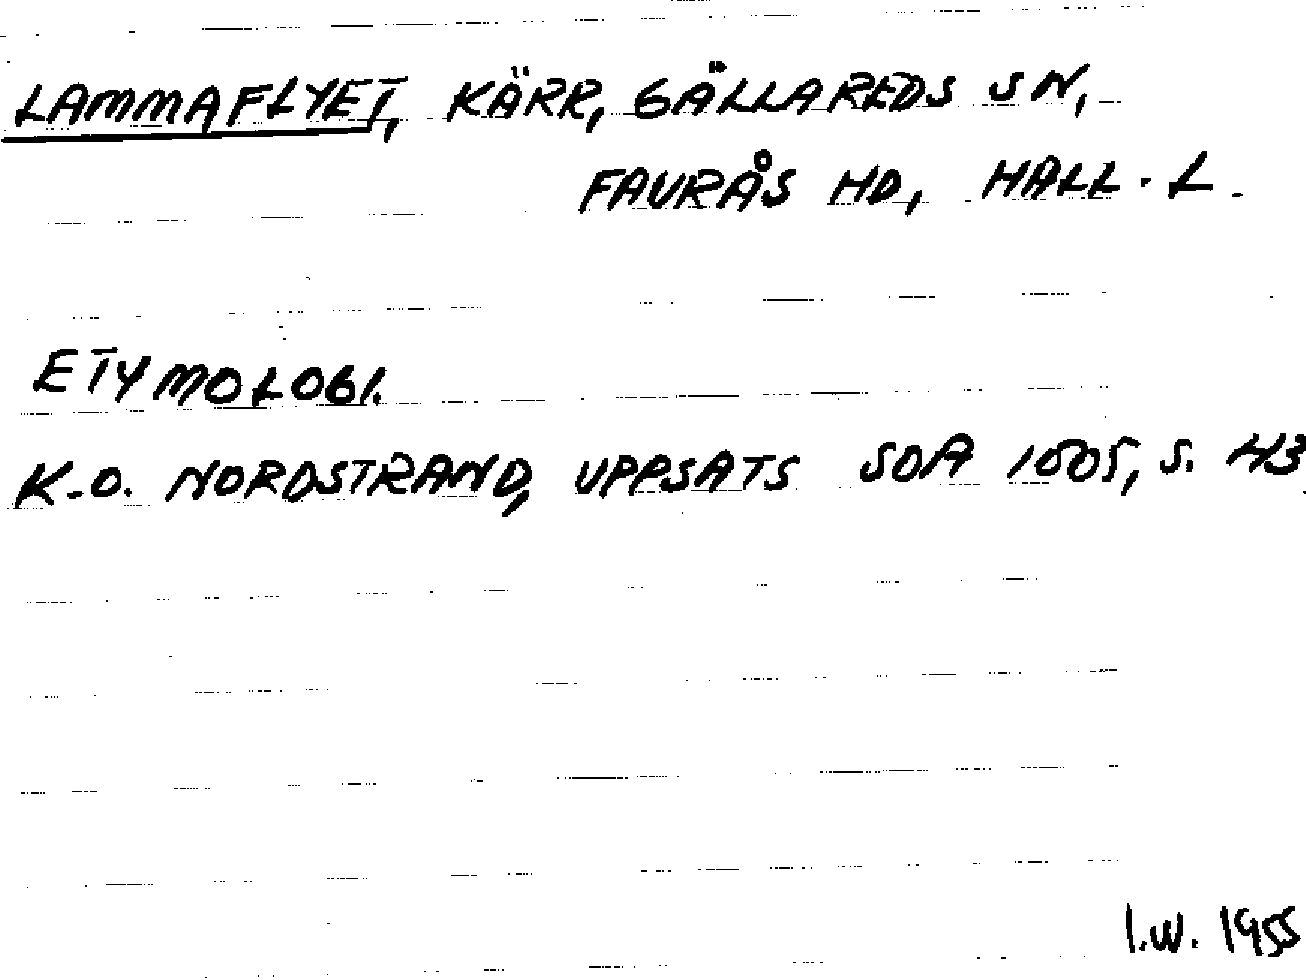 LAMMAFLYET, KÄRR, GÄLLAREDS SN,
FAURÅS HD, HALL. L.
ETYMOLOGI.
K.-O. NORDSTRAND, UPPSATS SOA 1505, S. 43
I.W. 1955